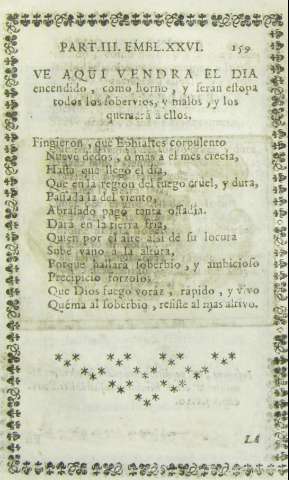 PART.III. EMBL.XXVI. 159
VE AQUI VENDRA EL DIA
encendido, como horno, y seran estopa
todos los sobervios, y malos, y los
quemarà à ellos.
Fingieron, que Ephialtes corpulento
Nueve dedos, ò mas à el mes crecia,
Hasta que llegò el dia,
Que en la region del fuego cruel, y dura,
Passada la del viento,
Abrasado pagò tanta ossadia.
Darà en la tierra fria,
Quien por el aire assi de su locura
Sube vano à la altura,
Porque hallarà soberbio, y ambicioso
Precipicio forzoso;
Que Dios fuego voràz, rapido, y vivo
Quèma al soberbio, resiste al mas altivo.
LA